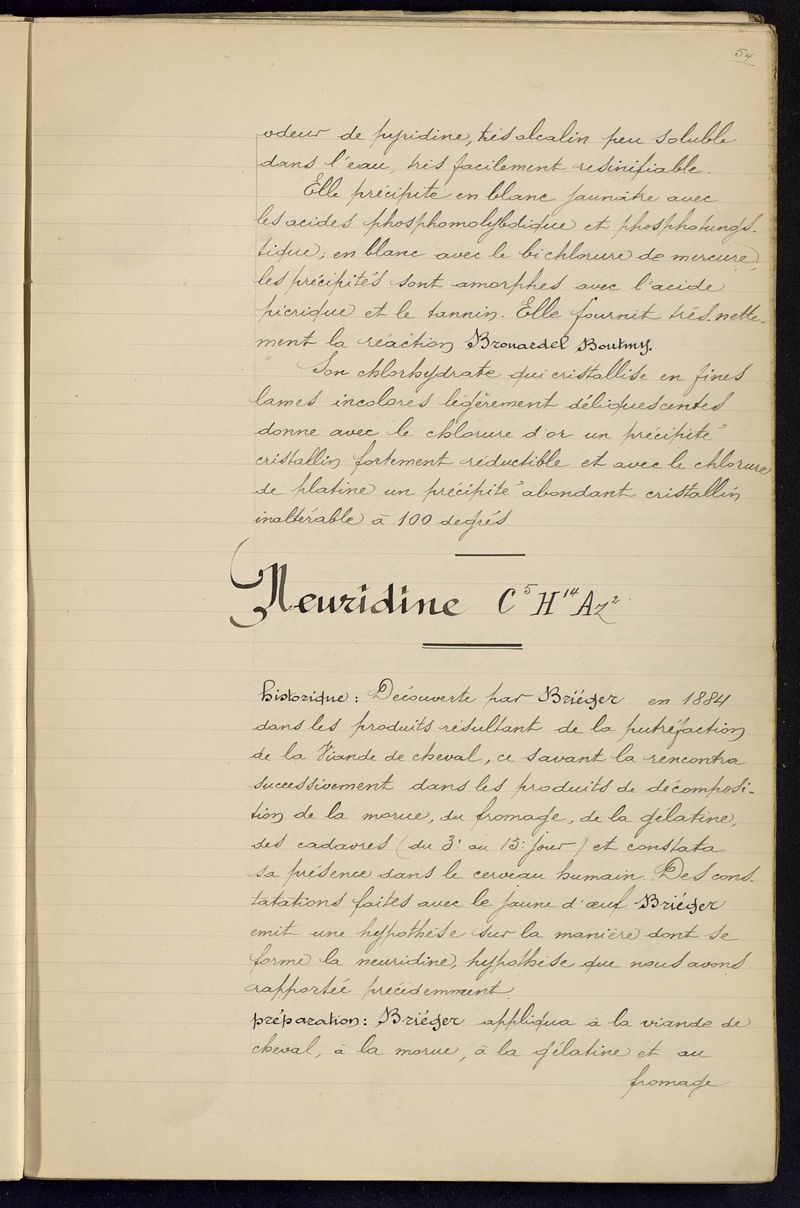 54
odeur de pyridine, très alcalin peu soluble
dans l'eau, très facilement resinifiable.
Elle précipite en blanc jaunâtre avec
les acides phosphomolybdique et phosphotungs-
tique; en blanc avec le bichlorure de mercure,
les précipités sont amorphes avec l'acide
picrique et le tannin. Elle fournit très nette-
ment la réaction Brouardel Boutmy.
Son chlorhydrate qui cristallise en fines
lames incolores légèrement déliquescentes
donne avec le chlorure d'or un précipité
cristallin fortement réductible et avec le chlorure
de platine un précipité abondant cristallin
inaltérable à 100 degrés
Neuridine C⁵H¹⁴Az²
historique: Découverte par Briéger en 1884
dans les produits résultant de la putréfaction
de la Viande de cheval, ce savant la rencontra
successivement dans les produits de décomposi-
tion de la morue, du fromage, de la gélatine,
des cadavres (du 3e au 15e jour) et constata
sa présence dans le cerveau humain. Des cons-
tatations faites avec le jaune d'œuf Briéger
emit une hypothèse sur la manière dont se
forme la neuridine, hypothèse que nous avons
rapportée précédemment.
préparation: Briéger appliqua à la viande de
cheval, à la morue, à la gélatine et au
fromage